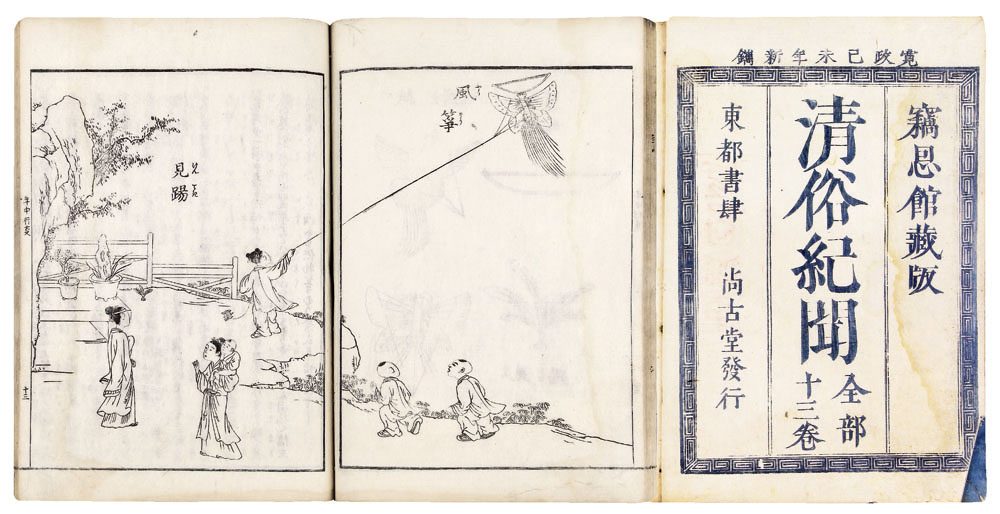 寛政己未年新鐫
竊恩館藏版
清俗紀聞
全部
十三卷
東都書肆 尚古堂發行
風箏
見踢
年中行事
十三